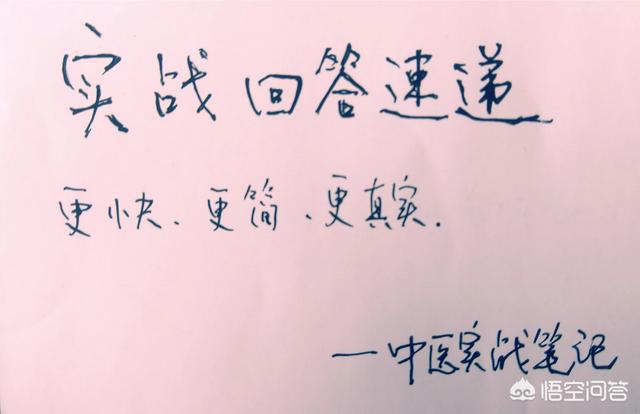 实战回答速递
更快、更简、更真实.
一中医实战笔记
悟空问答